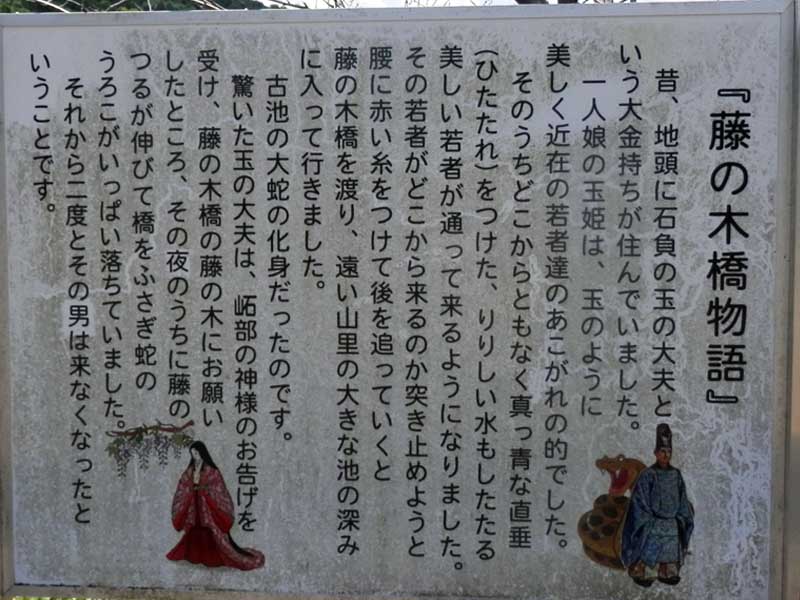 『藤の木橋物語』
昔、地頭に石負の玉の大夫と
いう大金持ちが住んでいました。
一人娘の玉姫は、玉のように
美しく近在の若者達のあこがれの的でした。
そのうちどこからともなく真っ青な直垂
(ひたたれ)をつけた、りりしい水もしたたる
美しい若者が通って来るようになりました。
その若者がどこから来るのか突き止めようと
腰に赤い糸をつけて後を追っていくと
藤の木橋を渡り、遠い山里の大きな池の深み
に入って行きました。
古池の大蛇の化身だったのです。
驚いた玉の大夫は、岶部の神様のお告げを
受け、藤の木橋の藤の木にお願い
したところ、その夜のうちに藤の
つるが伸びて橋をふさぎ蛇の
うろこがいっぱい落ちていました。
それから二度とその男は来なくなったと
いうことです。